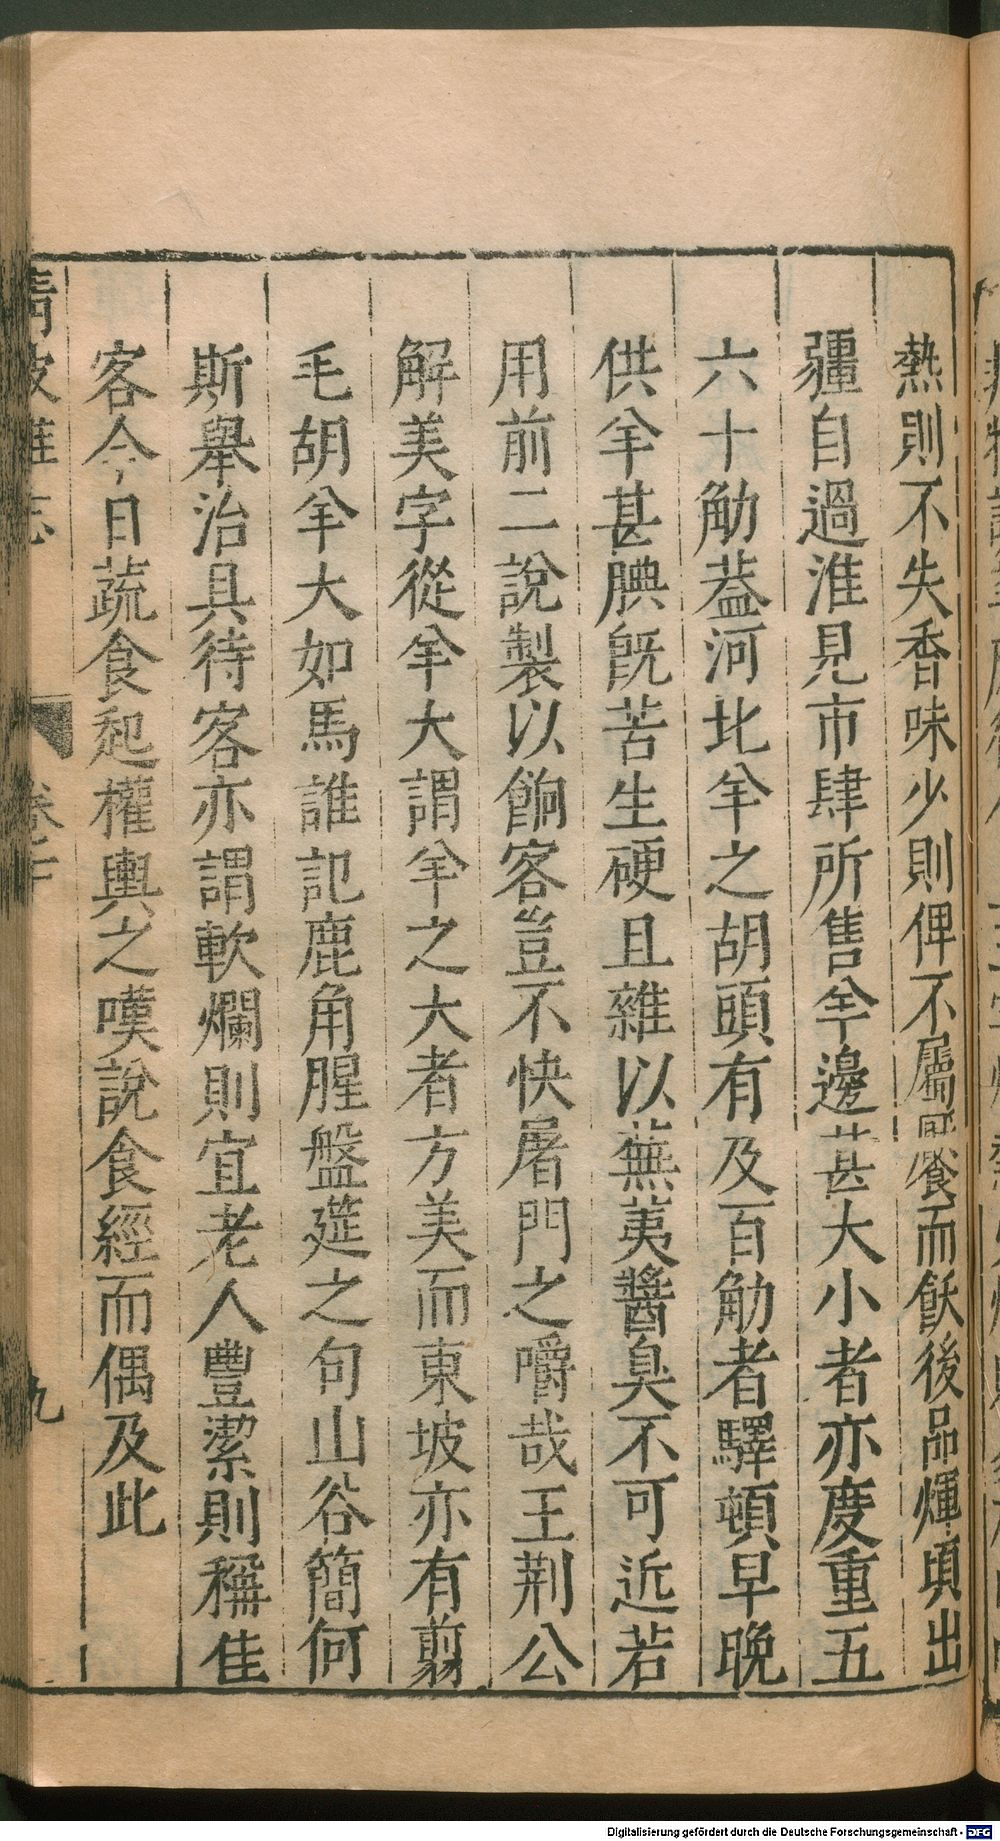 熱則不失香味少則俾不屬饜而飫後品煇頃出
疆自過淮見市肆所售羊邊甚大小者亦度重五
六十觔葢河北羊之胡頭有及百觔者驛頓早晚
供羊甚腆旣苦生硬且雜以蕪荑醬臭不可近若
用前二說製以餉客豈不快屠門之嚼哉王荆公
解美字從羊大謂羊之大者方美而東坡亦有翦
毛胡羊大如馬誰記鹿角腥盤筵之句山谷簡何
斯舉治具待客亦謂軟爛則宜老人豐潔則稱佳
客今日蔬食起權輿之嘆說食經而偶及此
清波雜志
卷
九
Digitalisierung gefördert durch die Deutsche Forschungsgemeinschaft - DFG